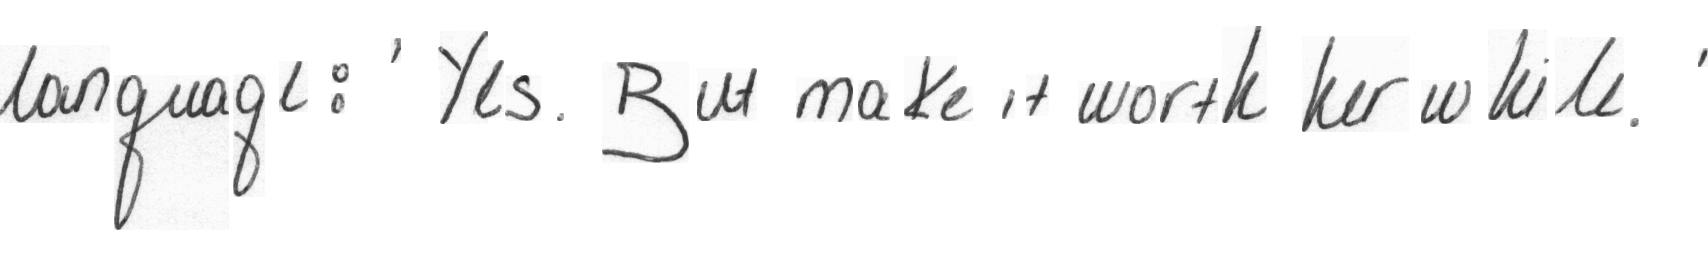 language: 'Yes. But make it worth her while.'